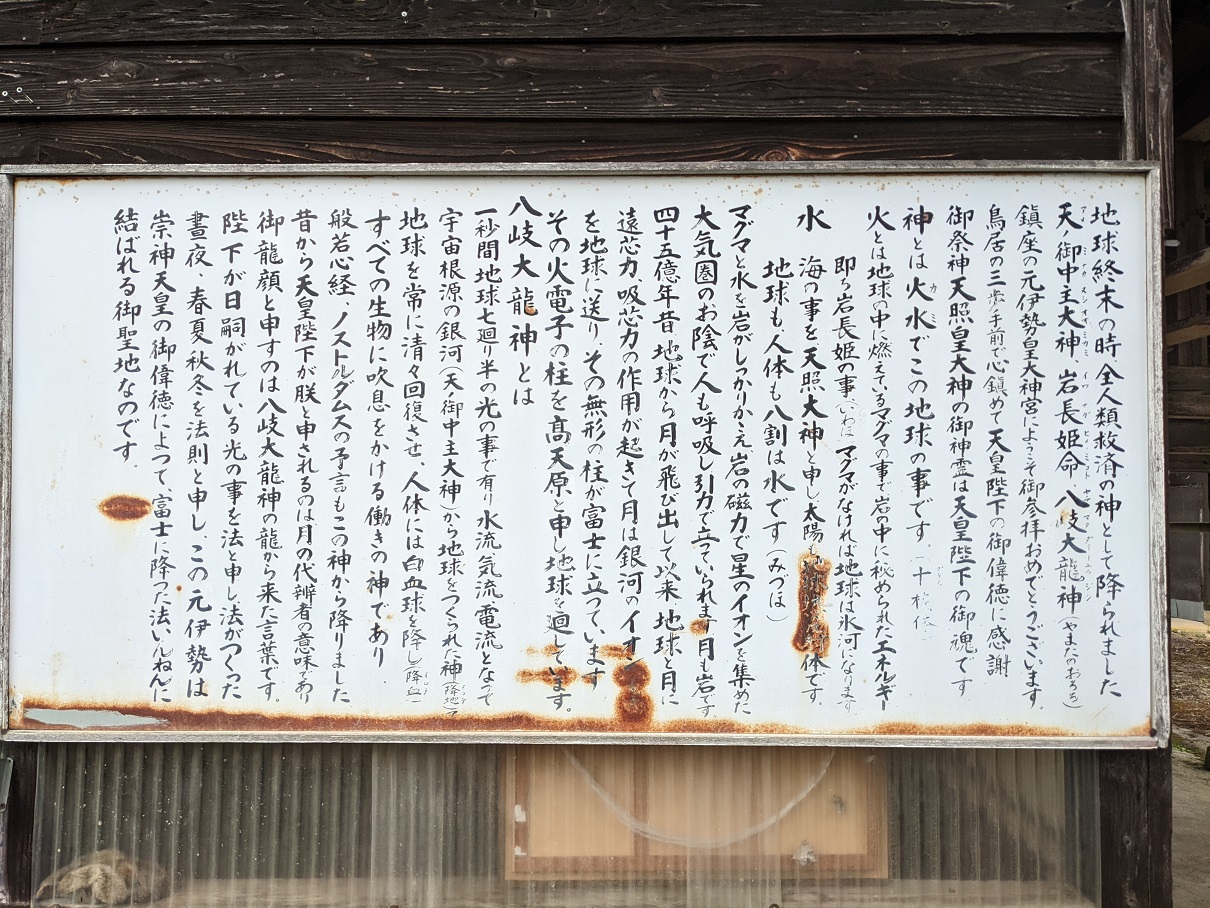 地球終末の時全人類救済の神として降られました
天ノ御中主大神 岩長姫命 八岐大龍神(やまたのおろち)
鎮座の元伊勢皇大神宮にようこそ御参拝おめでとうございます。
鳥居の三歩手前で心鎮めて天皇陛下の御偉徳に感謝
御祭神天照皇大神の御神霊は天皇陛下の御魂です
神とは火水でこの地球の事です。
火とは地球の中に燃えているマグマの事で岩の中に秘められたエネルギー
即ち岩長姫の事(いわは マグマがなければ地球は氷河になります
水 海の事を天照大神と申し太陽も 体です。
地球も、人体も八割は水です(みづは
マグマと水を岩がしっかりかゝえ岩の磁力で星のイオンを集めた
大気圏のお陰で人も呼吸し引力で立ていられます月も岩です
四十五億年昔 地球から月が飛び出して以来 地球と月に
遠芯力、吸芯力の作用が起きて月は銀河のイオン
を地球に送り、その無形の柱が富士に立つています
その火電子の柱を高天原と申し地球を廻しています。
八岐大龍神とは
一秒間地球七廻り半の光の事で有り水流気流電流となつて
宇宙根源の銀河(天ノ御中主大神)から地球をつくられた神(降地)
地球を常に清々回復させ、人体には白血球を降し(降血)
すべての生物に吹息をかける働きの神であり
般若心経、ノストルダムスの予言もこの神から降りました
昔から天皇陛下が朕と申されるのは月の代辨者の意味であり
御龍顔と申すのは八岐大龍神の龍から来た言葉です。
陛下が日嗣がれている光の事を法と申し法がつくつた
晝夜、春夏秋冬を法則と申し、この元伊勢は
崇神天皇の御偉徳によつて、富士に降つた法いんねんに
結ばれる御聖地なのです。